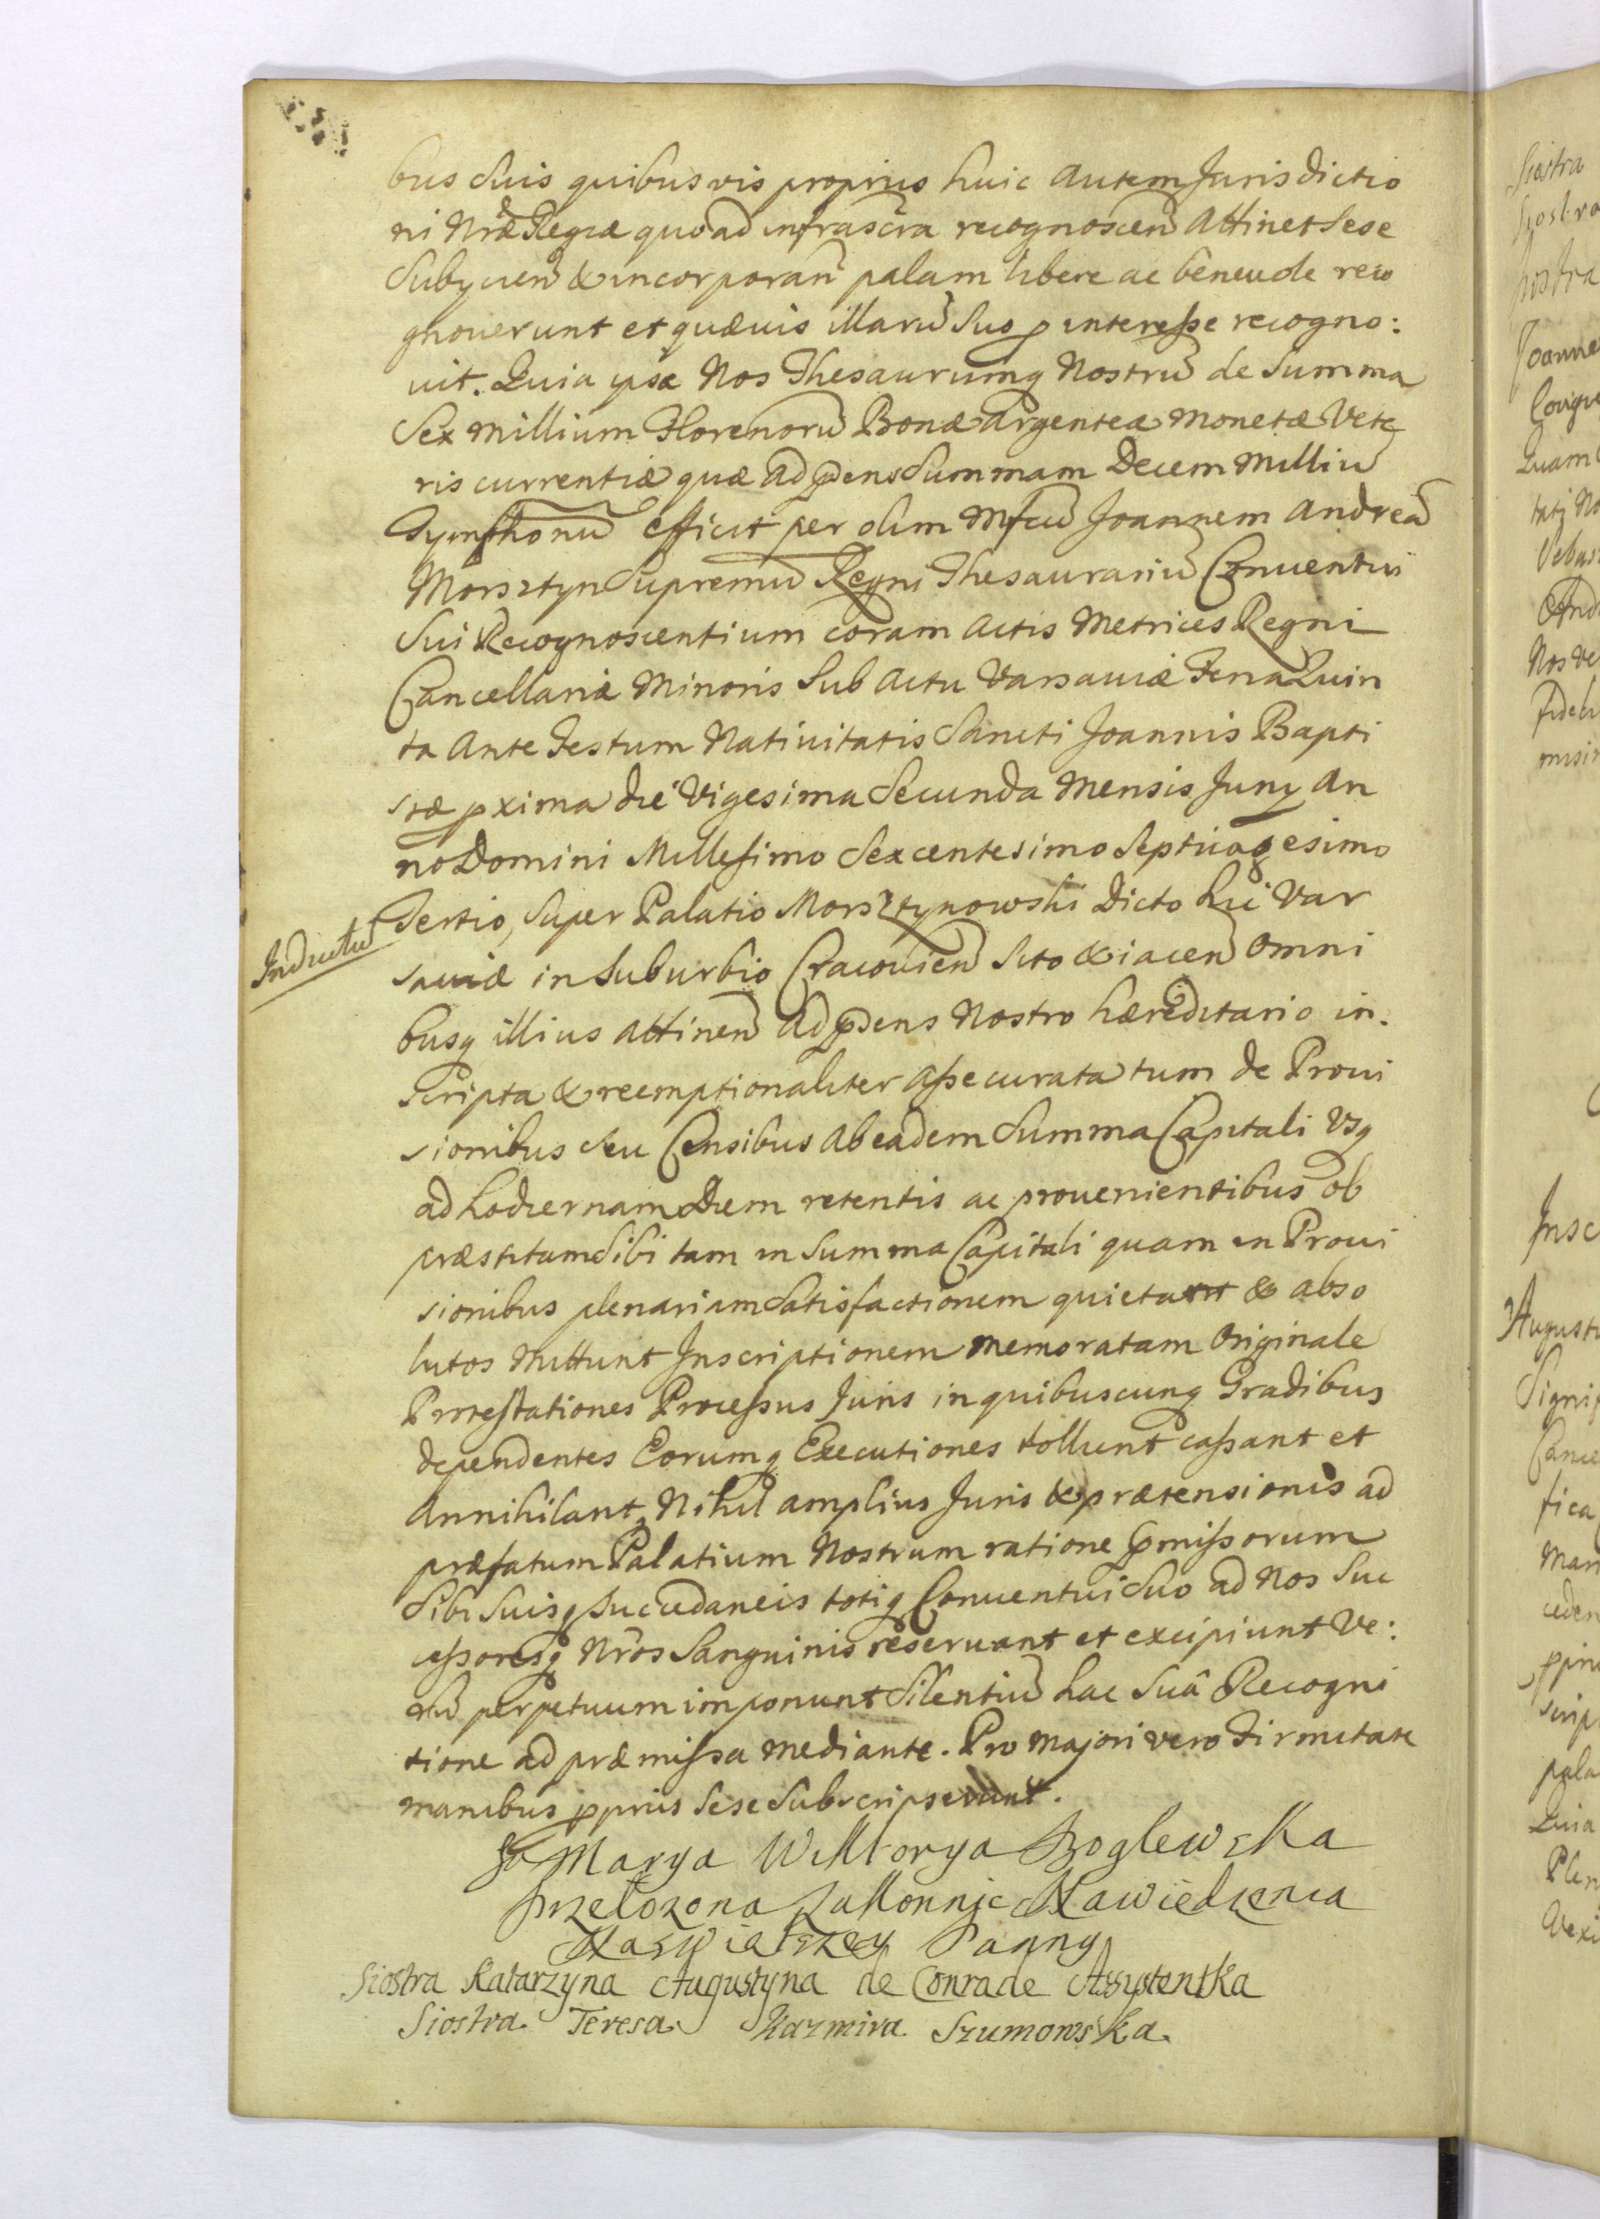 bus Suis quibusvis proprius huic autem Jurisdictio
ni Nrã Regiæ quoad infrascra recognoscen attinet Sese
Subycien & incorporan palam libere ac beneuole reco
gnouerunt et quæuis illarũ Suo p interesse recogno:
uit. Quia ipsæ Nos Thesaurumq Nostrũ de Summa
Sex Millium Florenorũ Bonæ Argenteæ Monetæ Vete
ris currentiæ quæ ad pdens Summam Decem Milliũ
Tymfhonũ efficit per olim Mfcũ Joannem Andreã
Morsztyn Supremũ Regni Thesaurariũ Conuentui
Sui Recognoscentium coram Actis Metrices Regni
Cancellariæ Minoris Sub Actu Varsauiæ Feria Quin
ta Ante Festum Natiuitatis Sancti Joannis Bapti
stæ pxima die Vigesima Secunda Mensis Juny An
no Domini Millesimo Sexcentesimo Septuagesimo
Tertio, Super Palatio Morsztynowski Dicto hic Var
Inductũ
sauiæ in Suburbio Cracouien Sito & iacen Omni
busq illius attinen ad pdens Nostro hæreditario in:
scripta & reemptionaliter assecurata tum de Proui
sionibus Seu Censibus Ab eadem Summa Capitali Vsq
ad hodiernam Diem retentis ac prouenientibus ob
præstitam Sibi tam in Summa Capitali quam in Proui
sionibus plenariam Satisfactionem quietant & abso
lutos Mittunt Inscriptionem Memoratam Originale
Protestationes Processus Juris in quibuscunq Gradibus
dependentes Eorumq Executiones tollunt cassant et
Annihilant, Nihil amplius Juris & prætensionis ad
præfatum Palatium Nostrum ratione pmissorum
Sibi Suisq Succedaneis totiq Conuentui Suo ad Nos Suc
cessoresq Nros Sanguinis reseruant et excipiunt Ve:
rũ perpetuum imponunt Silentiũ hac Suâ Recogni
tione ad præmissa mediante. Pro Majori vero Firmitate
manibus ppriis Sese Subscripserunt.
Ja Marya Wiktorya Boglewska
przelozona Zakonnic Nawiedzenia
Naswietszey Panny
Siostra Katarzyna Augustyna de Conrade Assystentka
Siostra Teresa Kazmira Szumowska.
Siostra
Joanne
Insc
pala
Quia